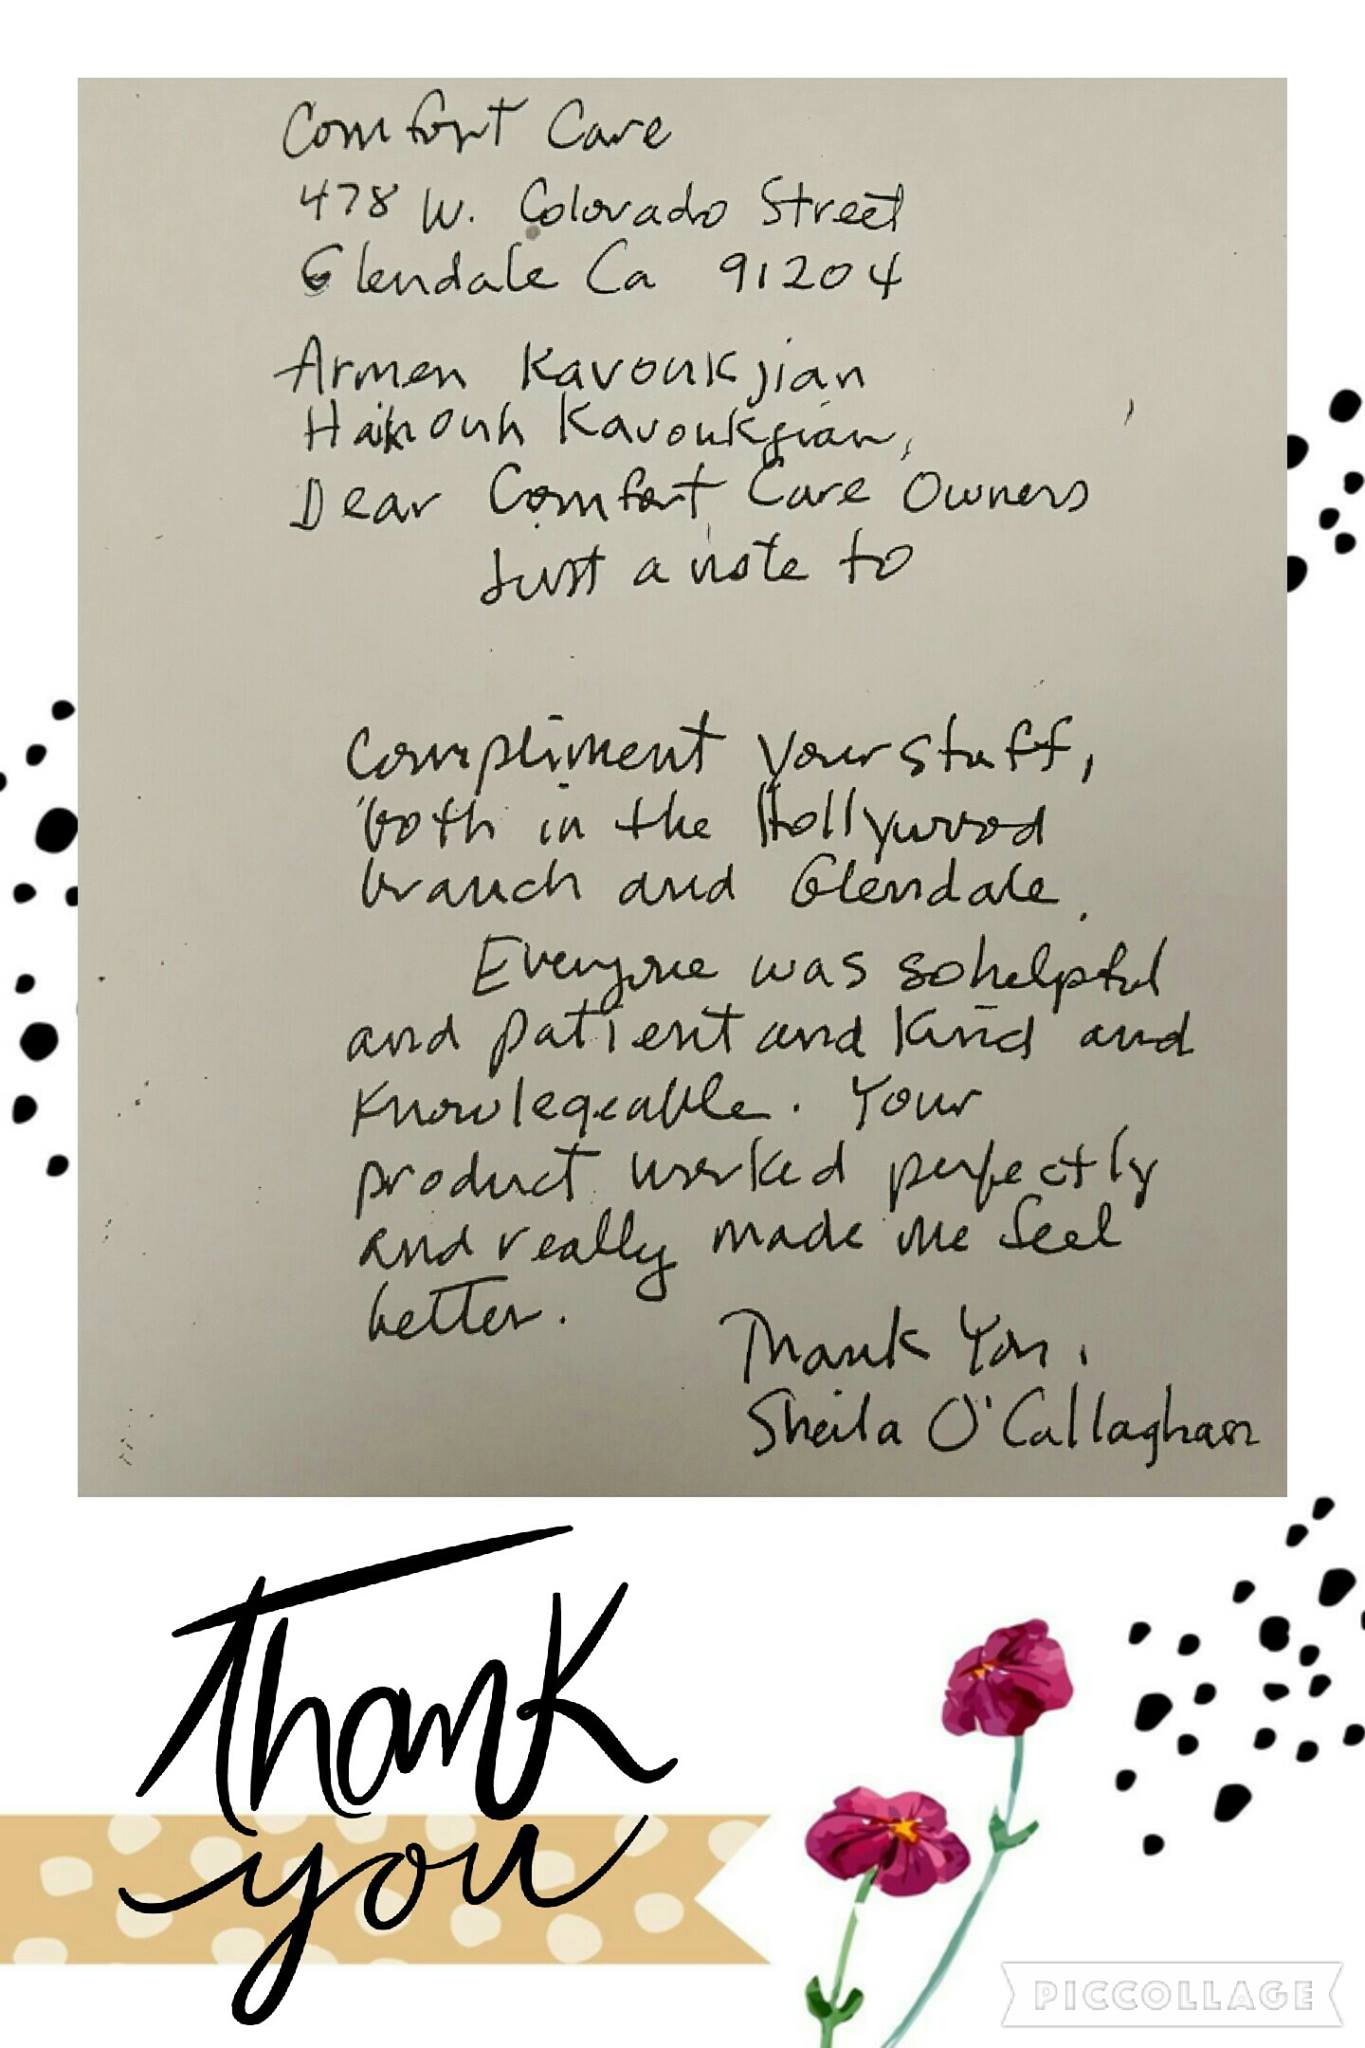 Comfort Care
478 W. Colorado Street
Glendale Ca 91204
Armen Kavoukjian
Haikouh Kavoukjian,
Dear Comfort Care Owners
Just a note to
Compliment your staff,
both in the Hollywood
branch and Glendale.
Everyone was so helpful
and patient and kind and
Knowlegeable. Your
product worked perfectly
and really made me feel
better.
Thank You,
Sheila O'Callaghan
Thank
you
PICCOLLAGE